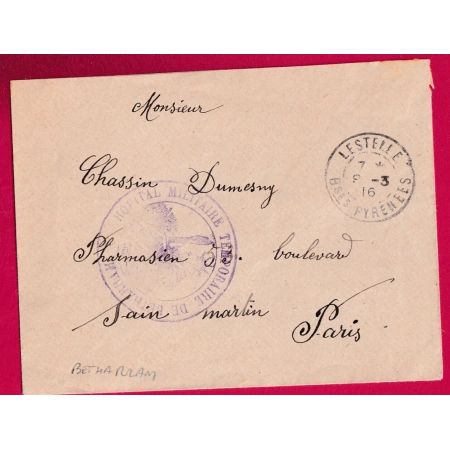 Monsieur
Chassin Dumesny
Pharmasien 35. boulevard
Sain martin
Paris
LESTELLE
7 *
8 -3
16
BSES PYRÉNÉES
HOPITAL MILITAIRE TEMPORAIRE DE BETHARRAM
BETHARRAM